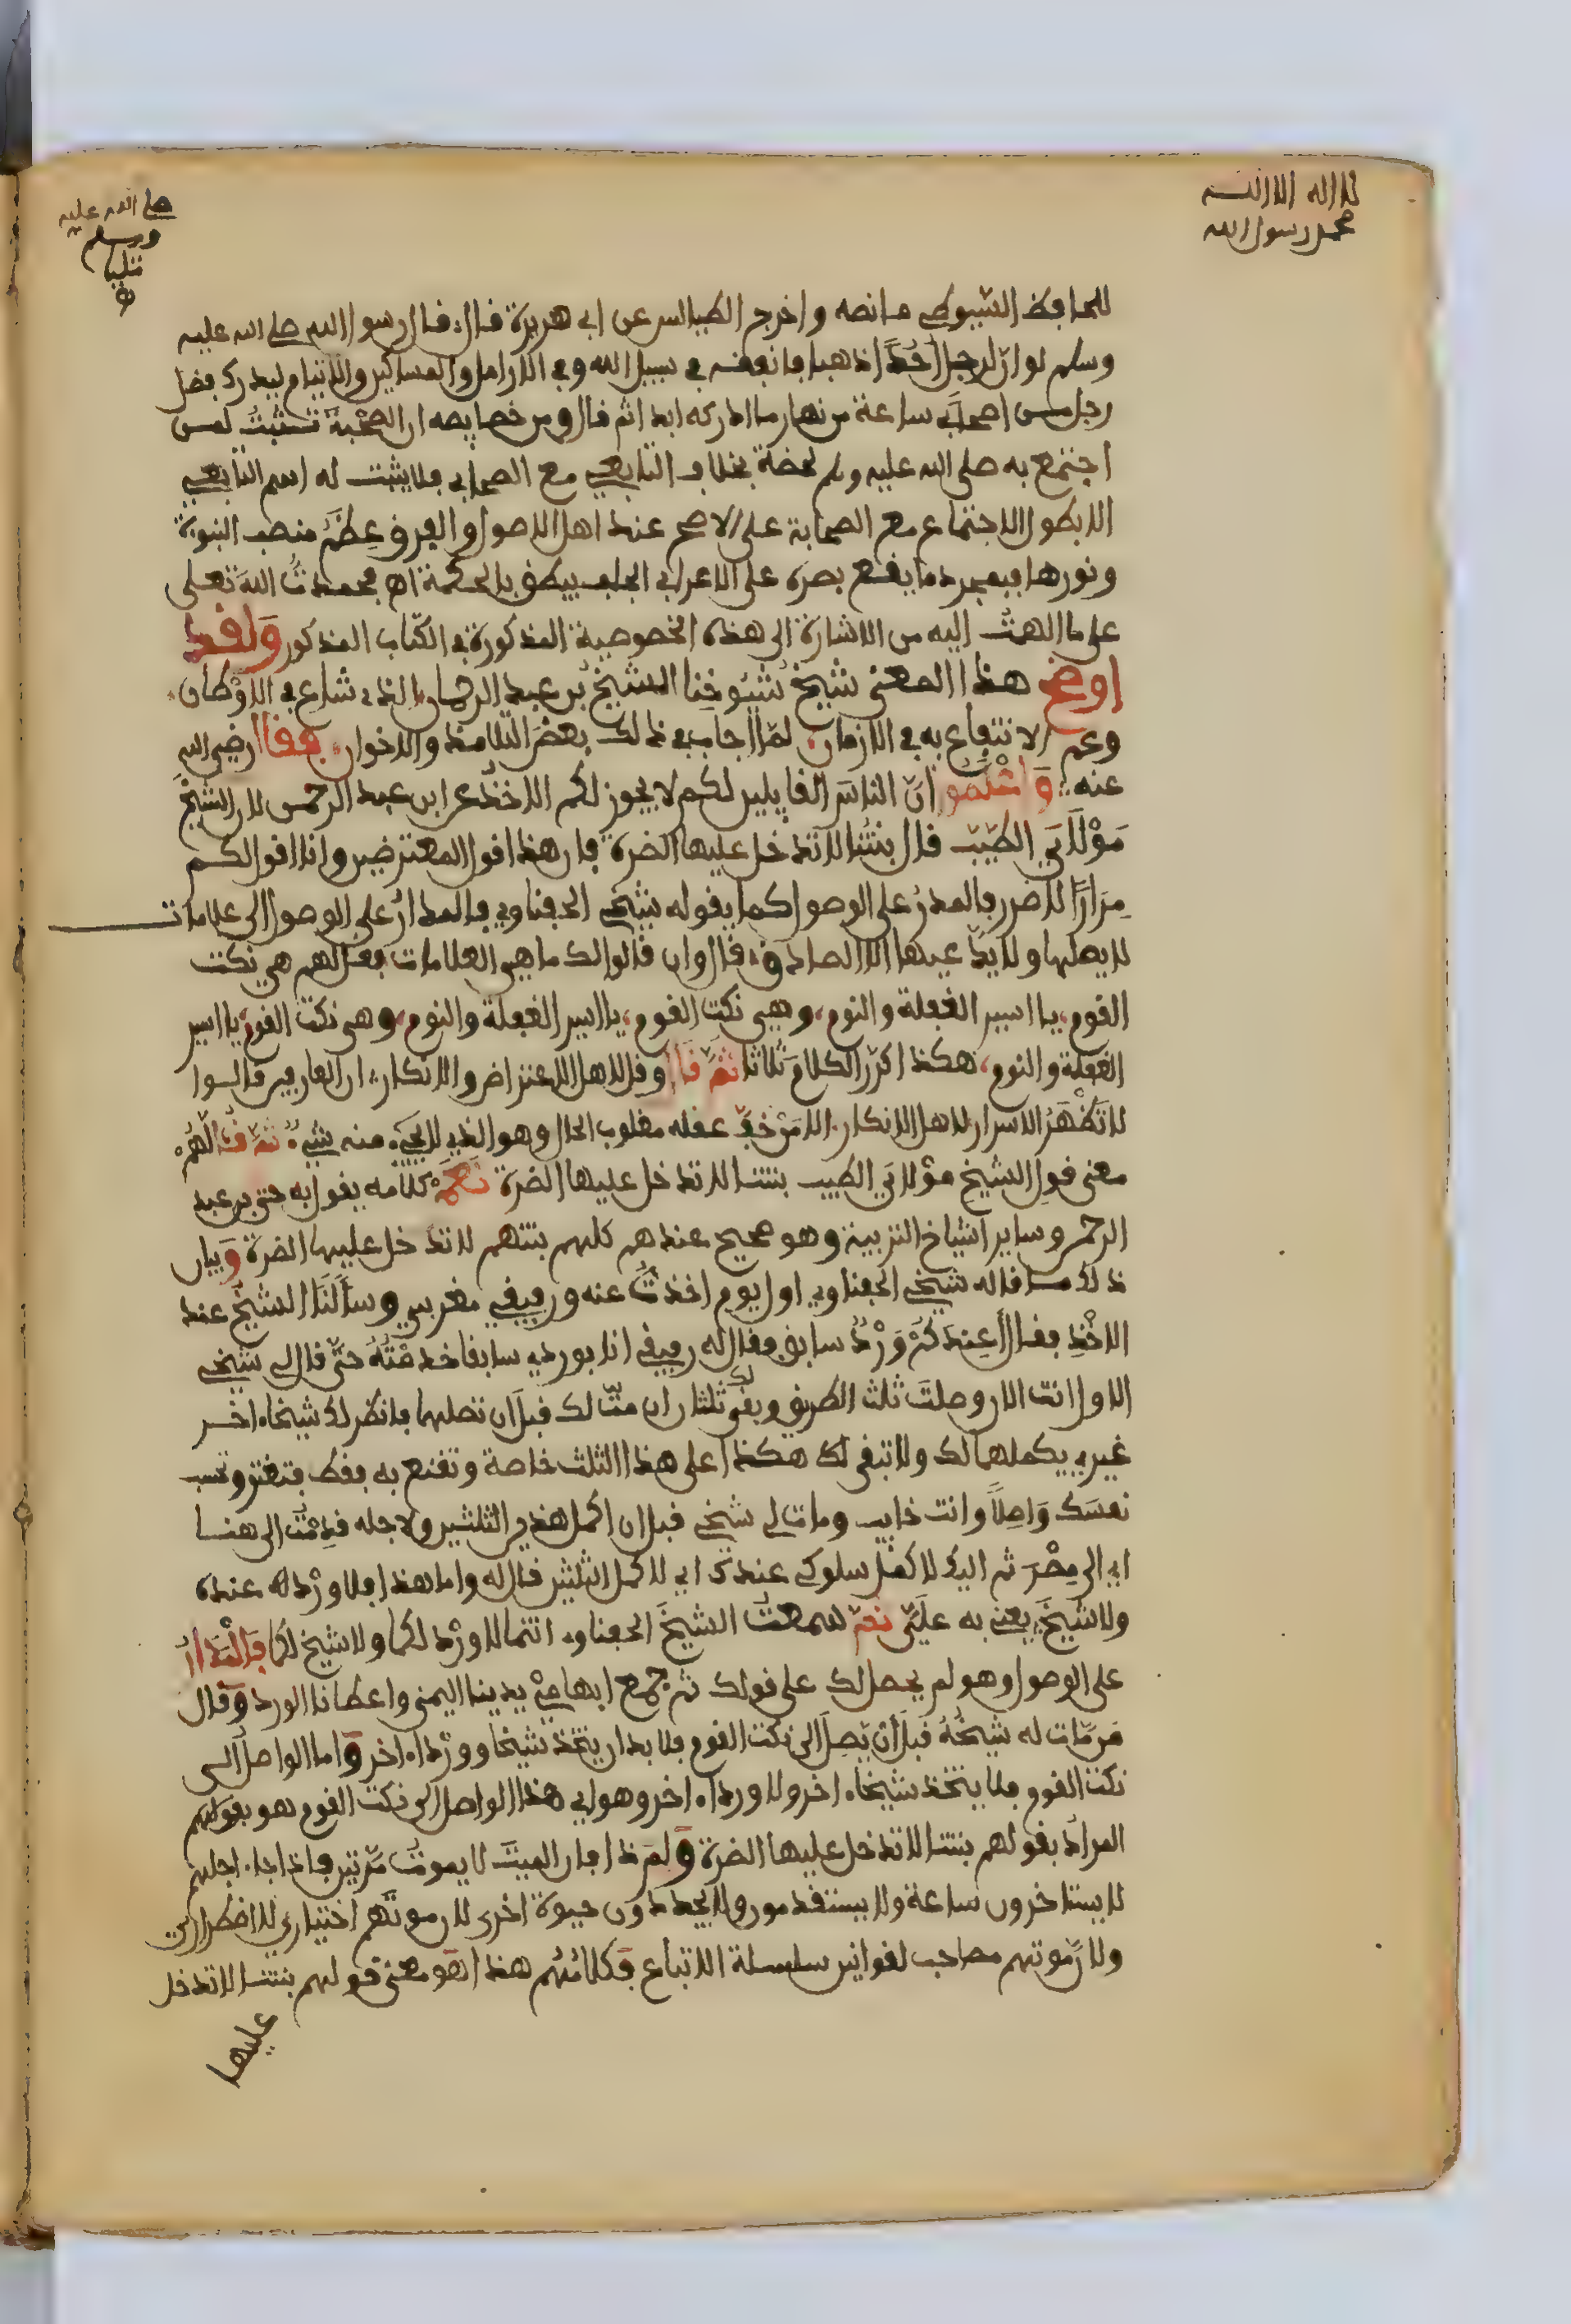 لا اله الا الله
محمد رسول الله
صلى الله عليه
وسلم
للحافظ السيوطي ما نصه واخرج الطيالسي عن ابي هريرة قال قال رسول الله صلى الله عليه
وسلم لو ان لرجل احدا ذهبا فانفقه في سبيل الله وفي الارامل والمساكين والايتام ليدرك فضل
رجل من اصحابي ساعة من نهار ما ادركه ابدا ثم قال ومن خصايصه ان الصحبة تثبت لمن
اجتمع به صلى الله عليه وسلم لحضة بخلاف التابعي مع الصحابي فلا يثبت له اسم التابعي
الا بطول الاجتماع مع الصحابة على الاصح عند اهل الاصول والفرق عظم منصب النبوة
ونورها فبمجرد ما يقع بصره على الاعرابي الجلف ينطق بالحكمة اه فحمدت الله تعلى
على ما الهمت اليه من الاشارة الى هذه الخصوصية المذكورة في الكتاب المذكور ولقد
اوضح هذا المعنى شيخ شيوخنا الشيخ بن عبد الرحمان الذي شاع في الاوطان
وعم الانتفاع به في الازمان لما اجاب في ذلك بعض التلامذ والاخوان فقال رضي الله
عنه واعلموا ان الناس القايلين لكم لا يجوز لكم الاخذ عن ابن عبد الرحمن لان الشيخ
مولاي الطيب قال بنتنا لا تدخل عليها الضرة فان هذا قول المعترضين وانا اقول لكم
مرارا لا ضرر فالمدار على الوصول كما يقوله شيخي الحفناوي فالمدار على الوصول الى علامات
لا يصلها ولا يدعيها الا الصادق قال وان قالوا لك ما هي العلامات فقل لهم هي نكت
القوم يا اسير الغفلة والنوم وهي نكت القوم يا اسير الغفلة والنوم وهي نكت القوم يا اسير
الغفلة والنوم هكذا كرر الكلام ثلاثا ثم قال وقل لاهل الاعتراض والانكار ان العارفين قالوا
لا تظهر الاسرار لاهل الانكار الا من خف عقله مغلوب الحال وهو الذي لا يجيء منه شيء ثم قل لهم
معنى قول الشيخ مولاي الطيب بنتنا لا تدخل عليها الضرة نعم كلامه يقول به حتى بن عبد
الرحمن وساير اشياخ التربية وهو صحيح عندهم كلهم بنتهم لا تدخل عليها الضرة وبيان
ذلك ما قاله شيخي الحفناوي اول يوم اخذت عنه ورفيقي مغربي وسالنا الشيخ عند
الاخذ فقال اعندكم ورد سابق فقال له رفيقي انا بوردي سابقا خدمته حتى قال لي شيخي
الاول انت الان وصلت ثلث الطريق وبقى لك ثلثان ان مت لك قبل ان تصلهما فانظر لك شيخا اخر
غيري يكملهما لك ولا تبقى لك هكذا على هذا الثلث خاصة وتقنع به فقط فتغتر وتحسب
نفسك واصلا وانت خايب ومات لي شيخي قبل ان اكمل هذين الثلثين ولاجله قدمت الى هنا
اي الى مصر ثم اليك لاكمل سلوكي عندك اي لاكمل الثلثين قال له واما هذا فلا ورد له عنده
ولا شيخ يعني به علي نعم سمعت الشيخ الحفناوي انتما لا ورد لكما ولا شيخ لكما فالمدار
على الوصول وهو لم يحصل لك على قولك ثم جمع ابهامي يدينا اليمنى واعطانا الورد وقال
من مات له شيخه قبل ان يصل الى نكت القوم فلا بد ان يتخذ شيخا ووردا اخر واما الواصل الى
نكت القوم فلا يتخذ شيخا اخر ولا وردا اخر وهو اي هذا الواصل الى نكت القوم هو بقولهم
المراد بقولهم بنتنا لا تدخل عليها الضرة ولم ذا فان الميت لا يموت مرتين فاذا جاء اجلهم
لا يستاخرون ساعة ولا يستقدمون ولا يجددون حيوة اخرى لان موتهم اختياري لا اضطراري
ولان موتهم مصاحب لقوانين سلسلة الاتباع فكلامهم هذا هو معنى قولهم بنتنا لا تدخل
عليها